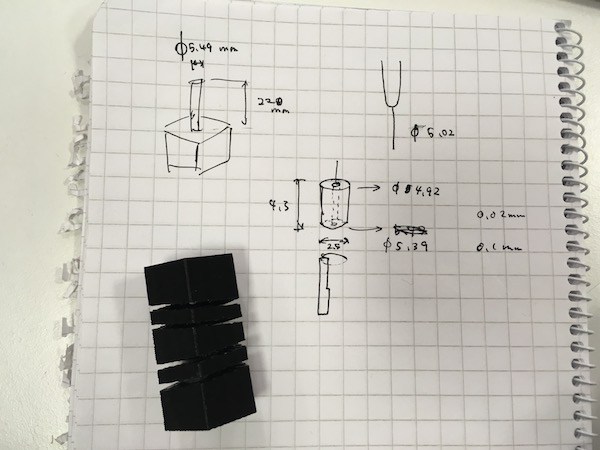 ϕ5.49 mm
mm
ϕ5.02
4.3
ϕ4.92
0.02mm
ϕ5.39
0.1mm